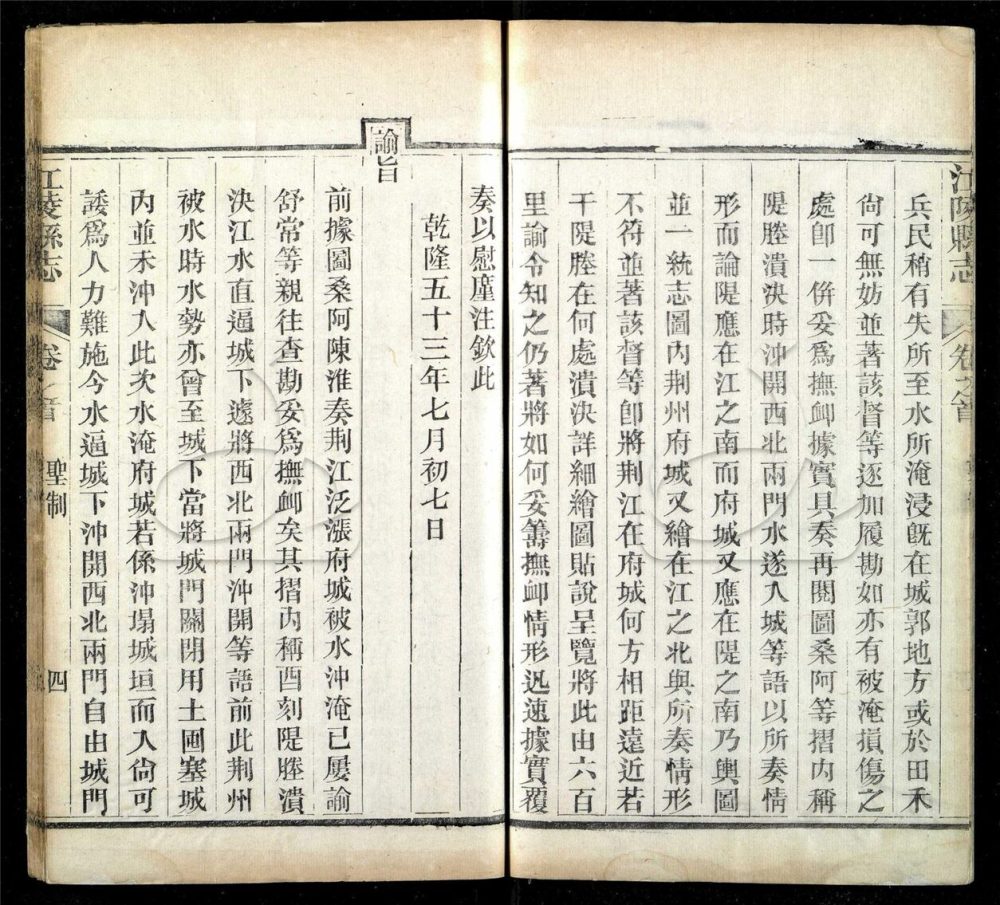 江陵縣志
卷之首
兵民稍有失所至水所淹浸旣在城郭地方或於田禾
尙可無妨並著該督等逐加履勘如亦有被淹損傷之
處卽一併妥爲撫卹據實具奏再閱圖桑阿等摺內稱
隄塍潰決時沖開西北兩門水遂入城等語以所奏情
形而論隄應在江之南而府城又應在隄之南乃輿圖
並一統志圖內荆州府城又繪在江之北與所奏情形
不符並著該督等卽將荆江在府城何方相距遠近若
干隄塍在何處潰決詳細繪圖貼說呈覽將此由六百
里諭令知之仍著將如何妥籌撫卹情形迅速據實覆
奏以慰廑注欽此
乾隆五十三年七月初七日
諭旨
前據圖桑阿陳淮奏荆江泛漲府城被水沖淹已屢諭
舒常等親往查勘妥爲撫卹矣其摺內稱酉刻隄塍潰
決江水直逼城下遽將西北兩門沖開等語前此荆州
被水時水勢亦曾至城下當將城門關閉用土囤塞城
內並未沖入此次水淹府城若係沖塌城垣而入尙可
諉爲人力難施今水逼城下沖開西北兩門自由城門
江陵縣志
卷之首
聖制
四